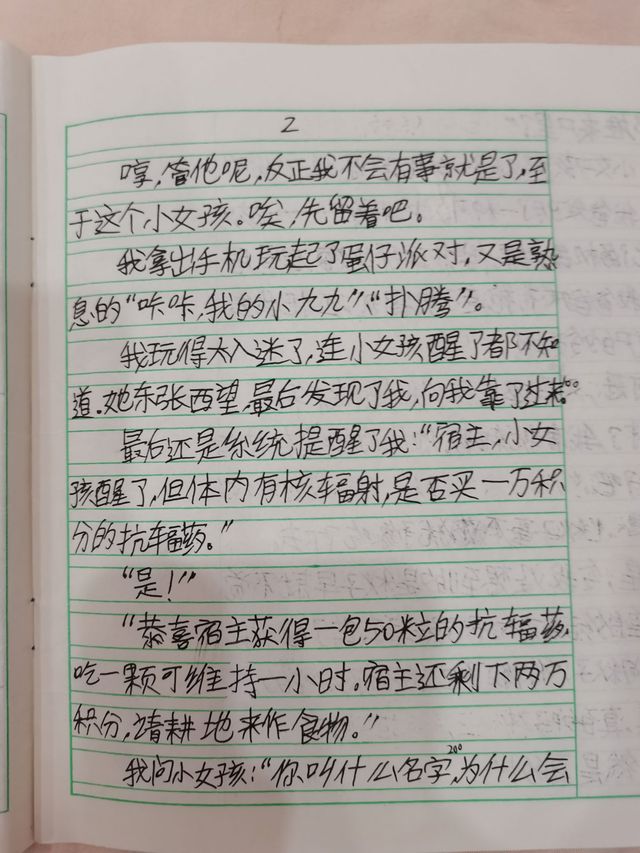 2
哼，管他呢，反正我不会有事就是了，至
于这个小女孩。唉，先留着吧。
我拿出手机玩起了蛋仔派对，又是熟
息的“咔咔，我的小九九”、“扑腾”。
我玩得太入迷了，连小女孩醒了都不知
道。她东张西望，最后发现了我，向我靠了过来。
最后还是系统提醒了我：“宿主，小女
孩醒了，但体内有核辐射，是否买一万积
分的抗辐药。”
“是！”
“恭喜宿主获得一包50粒的抗辐药，
吃一颗可维持一小时。宿主还剩下两万
积分，请耕地来作食物。”
200
我问小女孩：“你叫什么名字，为什么会